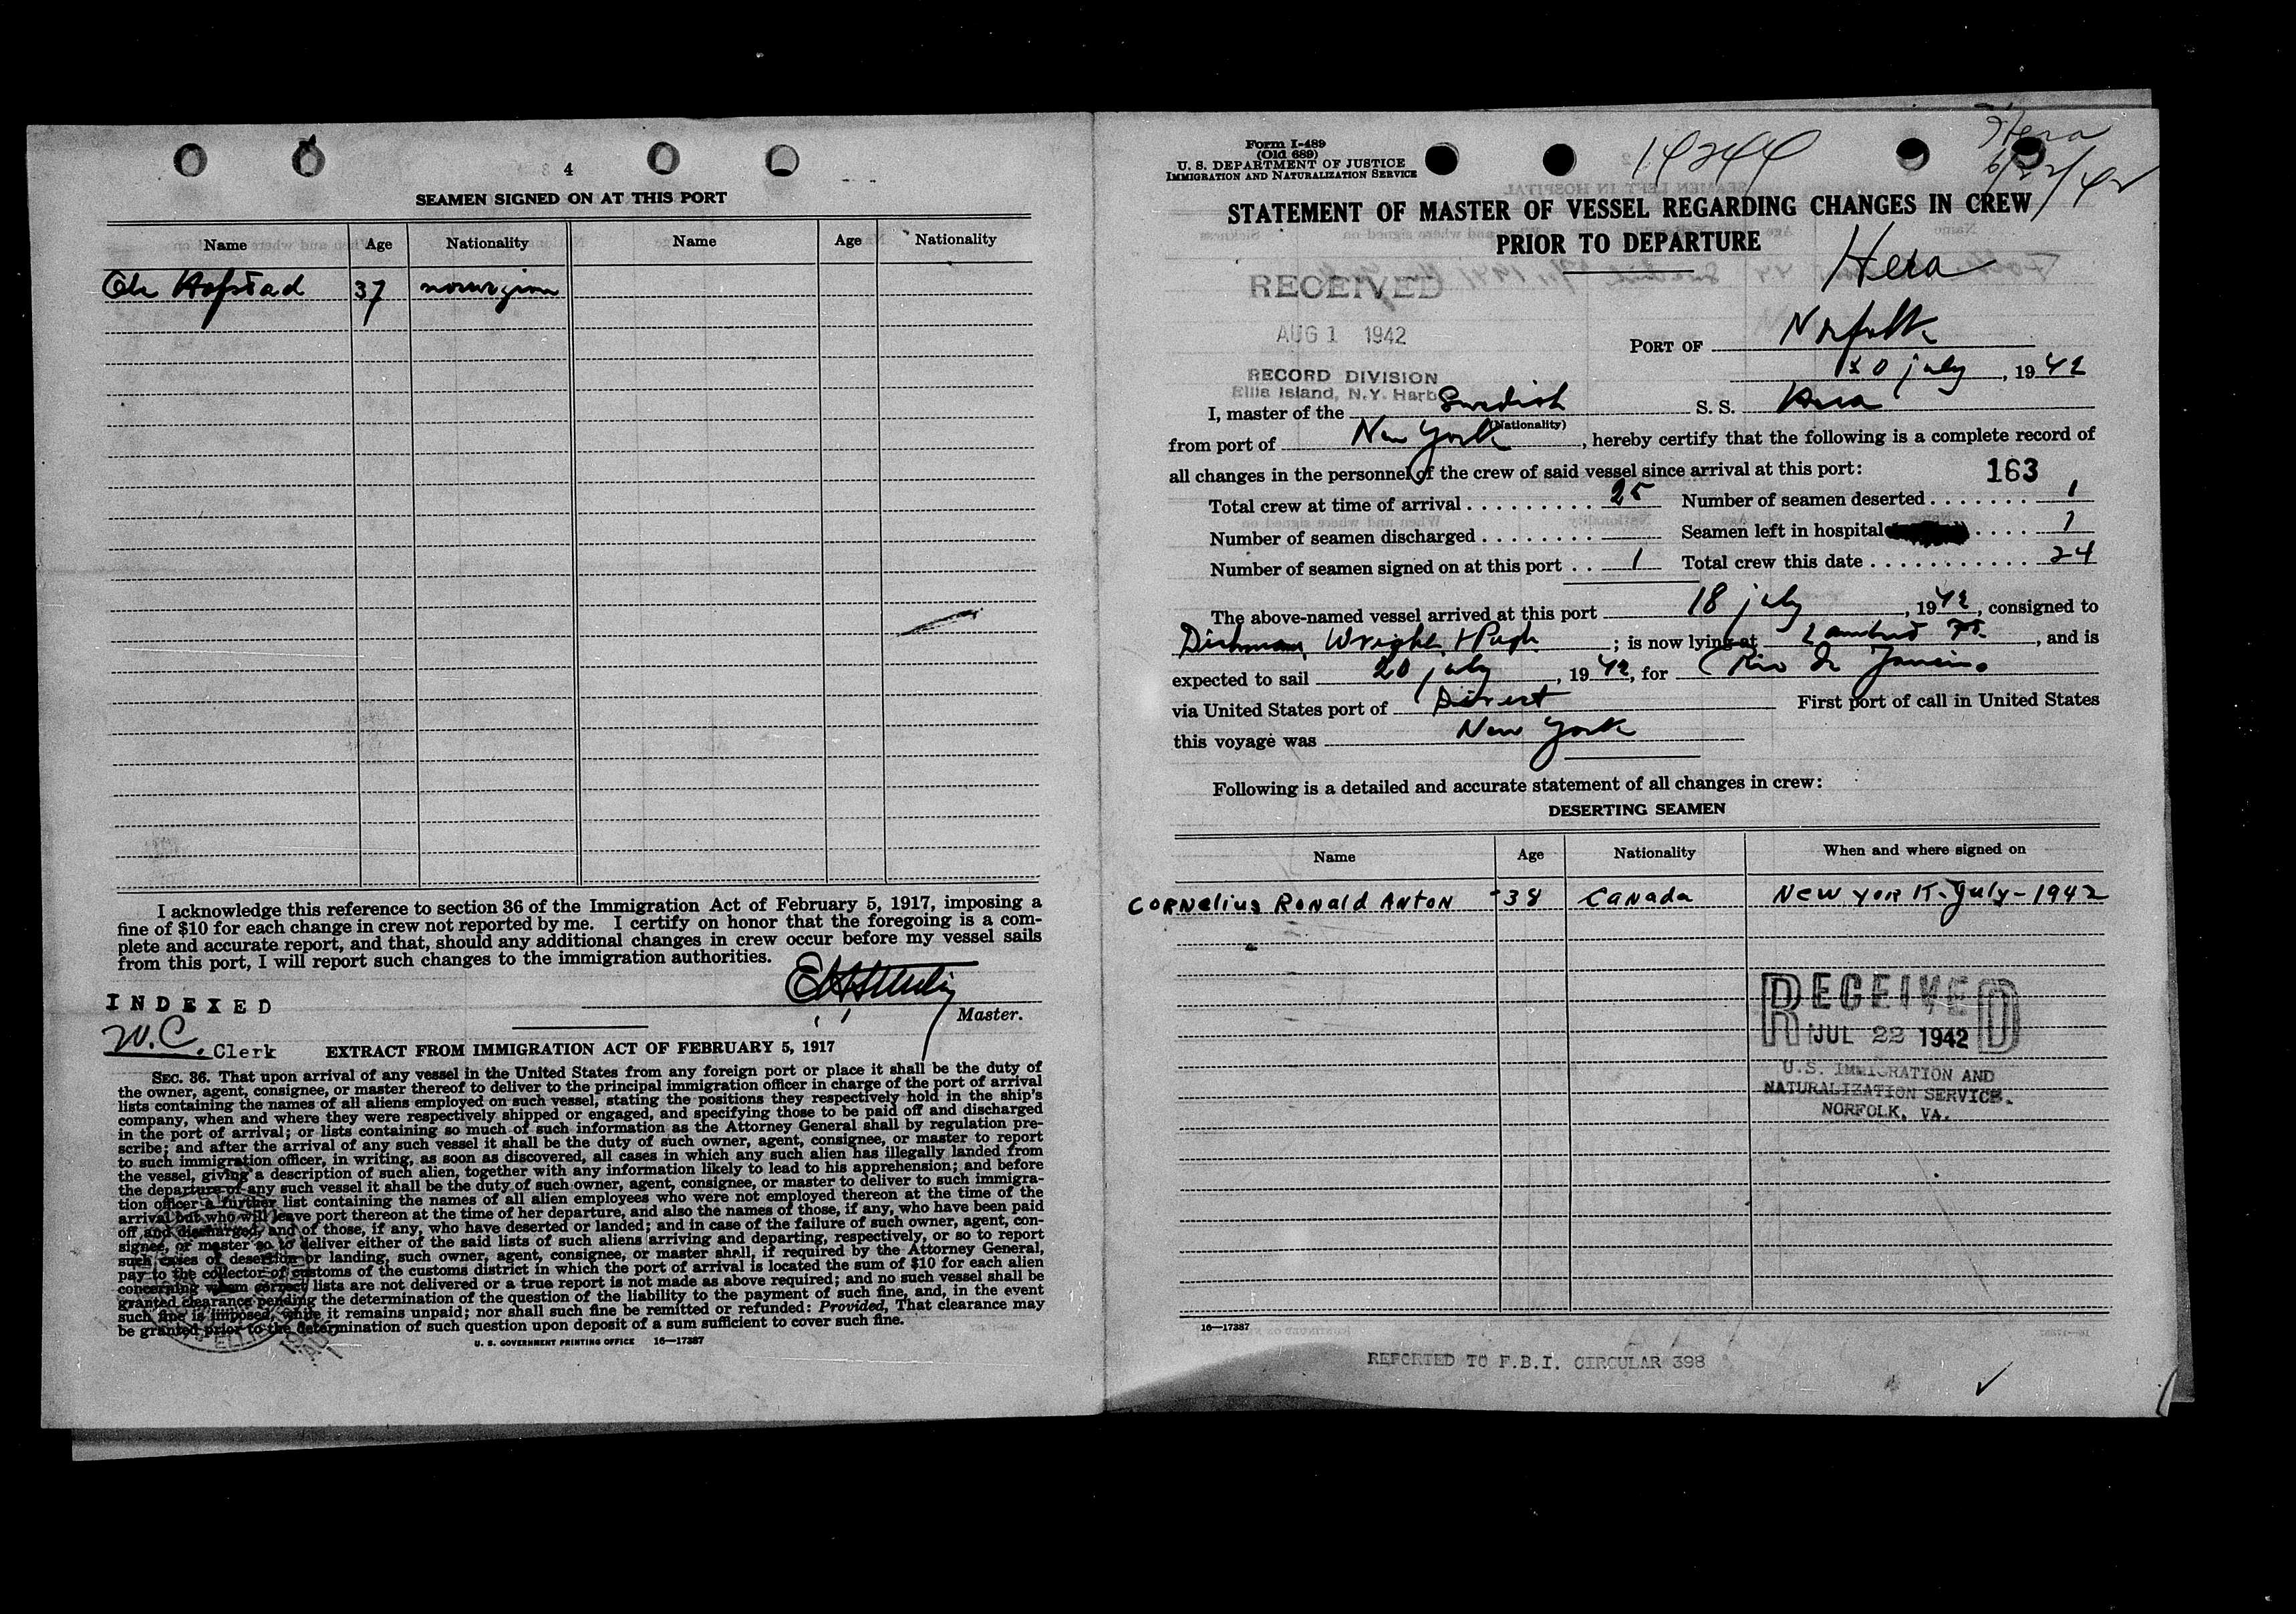 4
SEAMEN SIGNED ON AT THIS PORT
Name Age Nationality Name Age Nationality
Ole Hofstad 37 norwegian
I acknowledge this reference to section 36 of the Immigration Act of February 5, 1917, imposing a
fine of $10 for each change in crew not reported by me. I certify on honor that the foregoing is a com-
plete and accurate report, and that, should any additional changes in crew occur before my vessel sails
from this port, I will report such changes to the immigration authorities.
INDEXED
Master.
W.C. Clerk
EXTRACT FROM IMMIGRATION ACT OF FEBRUARY 5, 1917
SEC. 36. That upon arrival of any vessel in the United States from any foreign port or place it shall be the duty of
the owner, agent, consignee, or master thereof to deliver to the principal immigration officer in charge of the port of arrival
lists containing the names of all aliens employed on such vessel, stating the positions they respectively hold in the ship's
company, when and where they were respectively shipped or engaged, and specifying those to be paid off and discharged
in the port of arrival; or lists containing so much of such information as the Attorney General shall by regulation pre-
scribe; and after the arrival of any such vessel it shall be the duty of such owner, agent, consignee, or master to report
to such immigration officer, in writing, as soon as discovered, all cases in which any such alien has illegally landed from
the vessel, giving a description of such alien, together with any information likely to lead to his apprehension; and before
the departure of any such vessel it shall be the duty of such owner, agent, consignee, or master to deliver to such immigra-
tion officer a further list containing the names of all alien employees who were not employed thereon at the time of the
arrival but who will leave port thereon at the time of her departure, and also the names of those, if any, who have been paid
off and discharged, and of those, if any, who have deserted or landed; and in case of the failure of such owner, agent, con-
signee, or master so to deliver either of the said lists of such aliens arriving and departing, respectively, or so to report
such cases of desertion or landing, such owner, agent, consignee, or master shall, if required by the Attorney General,
pay to the collector of customs of the customs district in which the port of arrival is located the sum of $10 for each alien
concerning whom correct lists are not delivered or a true report is not made as above required; and no such vessel shall be
granted clearance pending the determination of the question of the liability to the payment of such fine, and, in the event
such fine is imposed, while it remains unpaid; nor shall such fine be remitted or refunded: Provided, That clearance may
be granted prior to the determination of such question upon deposit of a sum sufficient to cover such fine.
U. S. GOVERNMENT PRINTING OFFICE 16—17387
Form I-489
(Old 689)
U. S. DEPARTMENT OF JUSTICE
IMMIGRATION AND NATURALIZATION SERVICE
Hera
6/22/42
STATEMENT OF MASTER OF VESSEL REGARDING CHANGES IN CREW
PRIOR TO DEPARTURE
Hera
RECEIVED
AUG 1 1942
RECORD DIVISION
Ellis Island, N.Y. Harb
PORT OF Norfolk
20 july, 1942
I, master of the Swedish S. S. Hera
(Nationality)
from port of New York, hereby certify that the following is a complete record of
all changes in the personnel of the crew of said vessel since arrival at this port:
163
Total crew at time of arrival 25 Number of seamen deserted 1
Number of seamen discharged Seamen left in hospital 1
Number of seamen signed on at this port 1 Total crew this date 24
The above-named vessel arrived at this port 18 july, 1942, consigned to
Dichmann, Wright & Pugh; is now lying at Lamberts Pt., and is
expected to sail 20 july, 1942, for Rio de Janeiro
via United States port of Direct First port of call in United States
this voyage was New York
Following is a detailed and accurate statement of all changes in crew:
DESERTING SEAMEN
Name Age Nationality When and where signed on
Cornelius Ronald Anton 38 Canada New York-July-1942
RECEIVED
JUL 22 1942
U.S. IMMIGRATION AND
NATURALIZATION SERVICE.
NORFOLK, VA.
16—17387
REPORTED TO F.B.I. CIRCULAR 398